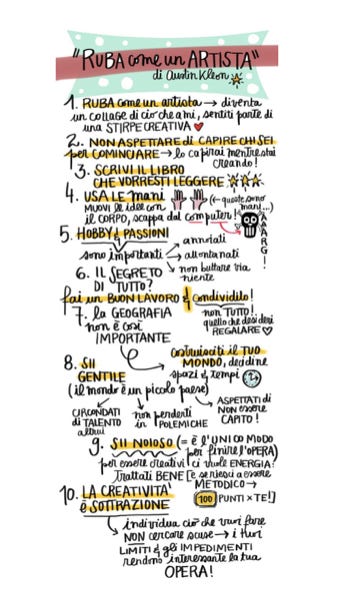 "RUBA come un ARTISTA"
di Austin Kleon
1. RUBA come un artista → diventa
un collage di ciò che ami, sentiti parte di
una STIRPE CREATIVA
2. NON ASPETTARE di CAPIRE CHI SEI
per COMINCIARE → lo capirai mentre stai
creando!
3. SCRIVI IL LIBRO
CHE VORRESTI LEGGERE
4. USA LE mani (← queste sono
mani...)
MUOVI le idee con
il CORPO, scappa dal computer!
AAARG!
5. HOBBY & PASSIONI
sono importanti → annotati
→ allontanati
→ non buttare via
niente
6. IL SEGRETO
DI TUTTO?
fai un BUON LAVORO & condividilo!
non TUTTO!
quello che desideri
REGALARE
7. la GEOGRAFIA
non è così
IMPORTANTE
costruisciti il TUO
MONDO, decidine
spazi & tempi
8. SII
GENTILE
(il mondo è un piccolo paese)
CIRCONDATI
di TALENTO
altrui
non perderti
in POLEMICHE
ASPETTATI di
NON essere
CAPITO!
9. SII NOIOSO (= è l'UNICO MODO
per finire l'OPERA)
per essere creativi ci vuole ENERGIA:
Trattati BENE [e se riesci a essere
METODICO →
100 PUNTI x TE!]
10. LA CREATIVITÀ
è SOTTRAZIONE
individua ciò che vuoi fare
NON cercare scuse → i tuoi
LIMITI & gli IMPEDIMENTI
rendono interessante la tua
OPERA!